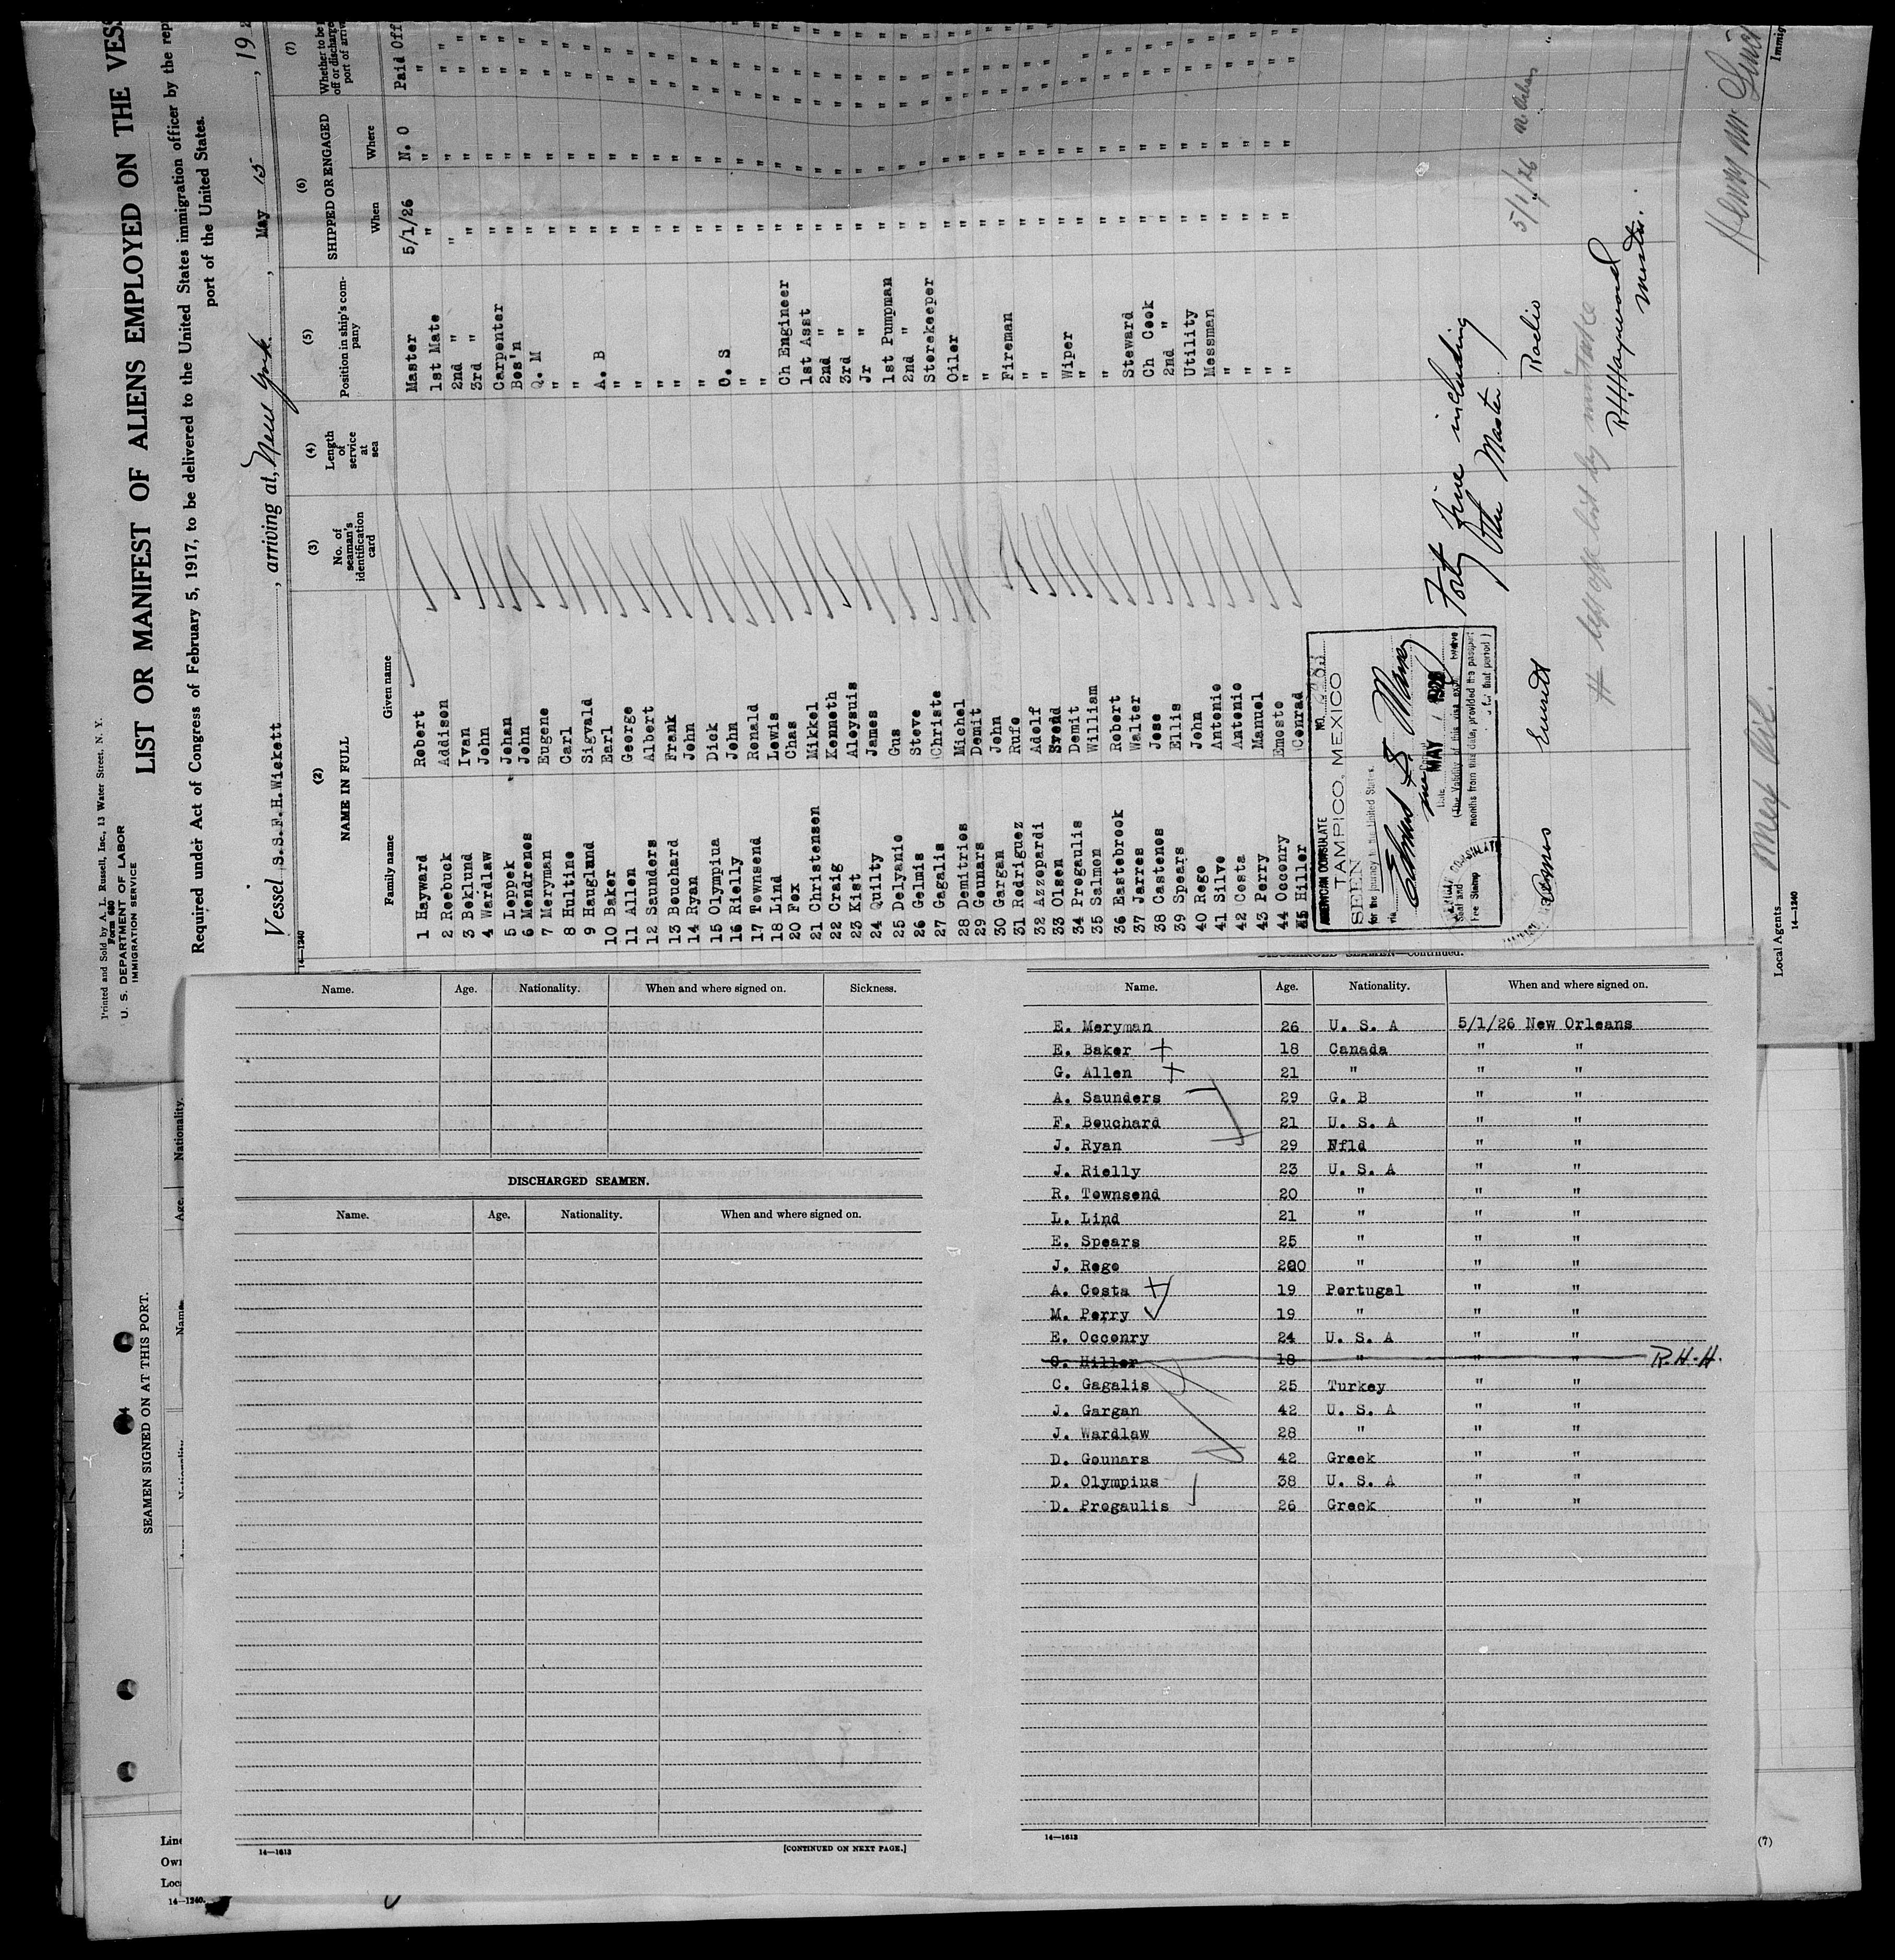 Printed and Sold by A. L. Russell, Inc., 13 Water Street, N. Y.
Form 680
U. S. DEPARTMENT OF LABOR
IMMIGRATION SERVICE
LIST OR MANIFEST OF ALIENS EMPLOYED ON THE VES
Required under Act of Congress of February 5, 1917, to be delivered to the United States immigration officer by the rep
port of the United States.
Vessel S.S.F.H.Wickett, arriving at, New York, May 15, 19 2
14—1240
(2) (3) (4) (5) (6) (7)
NAME IN FULL
Family name Given name
No. of seaman's identification card
Length of service at sea
Position in ship's company
SHIPPED OR ENGAGED
When Where
Whether to be
off or discharge
port of arriv
1 Hayward Robert Master 5/1/26 N. O Paid Off
2 Roebuck Addison 1st Mate " " "
3 Boklund Ivan 2nd " " " "
4 Wardlaw John 3rd " " " "
5 Leppek Johan Carpenter " " "
6 Mendrones John Bos'n " " "
7 Meryman Eugene Q. M " " "
8 Hultine Carl " " " "
9 Haugland Sigvald " " " "
10 Baker Earl A. B " " "
11 Allen George " " " "
12 Saunders Albert " " " "
13 Bouchard Frank " " " "
14 Ryan John " " " "
15 Olympius Dick " " " "
16 Rielly John O. S " " "
17 Townsend Ronald " " " "
18 Lind Lewis " " " "
20 Fox Chas Ch Engineer " " "
21 Christensen Mikkel 1st Asst " " "
22 Craig Kenneth 2nd " " " "
23 Kist Aloysuis 3rd " " " "
24 Quilty James Jr " " " "
25 Delyanis Gus 1st Pumpman " " "
26 Gelmis Steve 2nd " " " "
27 Gagalis Christe Storekeeper " " "
28 Demitrios Michel Oiler " " "
29 Gounars Demit " " " "
30 Gargan John " " " "
31 Rodriguez Rufo Fireman " " "
32 Azzopardi Adolf " " " "
33 Olsen Evend " " " "
34 Progaulis Demit Wiper " " "
35 Salmon William " " " "
36 Eastebrook Robert " " " "
37 Jarres Walter Steward " " "
38 Castenos Jose Ch Cook " " "
39 Spears Ellis 2nd " " " "
40 Rego John Utility " " "
41 Silvo Antonio Messman " " "
42 Costa Antonio " " " "
43 Perry Manuel " " " "
44 Occonry Emosto " " " "
45 Hiller Conrad " " " "
AMERICAN CONSULATE NO.
TAMPICO, MEXICO
SEEN
for the journey to the United States
via
Date MAY 1926
(The Validity of this visa expires twelve
months from this date, provided the passport
is for that period)
Seal and
Fee Stamp
Forty five including
the Master
Everett Radio 5/1/26 N. Orleans
# left off list by mistake
R.H.Hayward
Master.
Local Agents
14—1240
Immig
SEAMEN SIGNED ON AT THIS PORT.
Name. Age. Nationality.
Line
Own
Loca
14—1240.
(7)
Name. Age. Nationality. When and where signed on. Sickness.
DISCHARGED SEAMEN.
Name. Age. Nationality. When and where signed on.
14—1613
[CONTINUED ON NEXT PAGE.]
DISCHARGED SEAMEN—Continued.
Name. Age. Nationality. When and where signed on.
E. Meryman 26 U. S. A 5/1/26 New Orleans
E. Baker 18 Canada " "
G. Allen 21 " " "
A. Saunders 29 G. B " "
F. Bouchard 21 U. S. A " "
J. Ryan 29 Nfld " "
J. Rielly 23 U. S. A " "
R. Townsend 20 " " "
L. Lind 21 " " "
E. Spears 25 " " "
J. Rego 20 " " "
A. Costa 19 Portugal " "
M. Perry 19 " " "
E. Occonry 24 U. S. A " "
C. Hiller 18 " " " R.H.H.
C. Gagalis 25 Turkey " "
J. Gargan 42 U. S. A " "
J. Wardlaw 28 " " "
D. Gounars 42 Greek " "
D. Olympius 38 U. S. A " "
D. Progaulis 26 Greek " "
14—1613